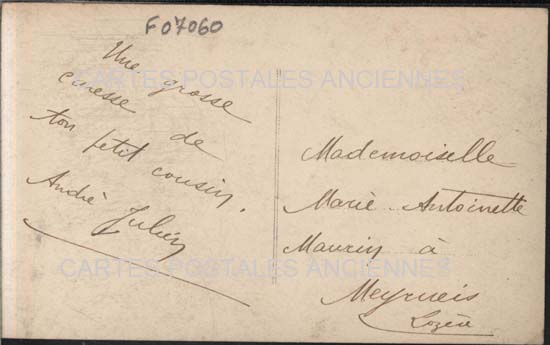 F07060
Une grosse
caresse de
ton petit cousin.
André Julien
Mademoiselle
Marie-Antoinette
Maurin à
Meyrueis
Lozère
CARTES POSTALES ANCIENNES
CARTES POSTALES ANCIENNES